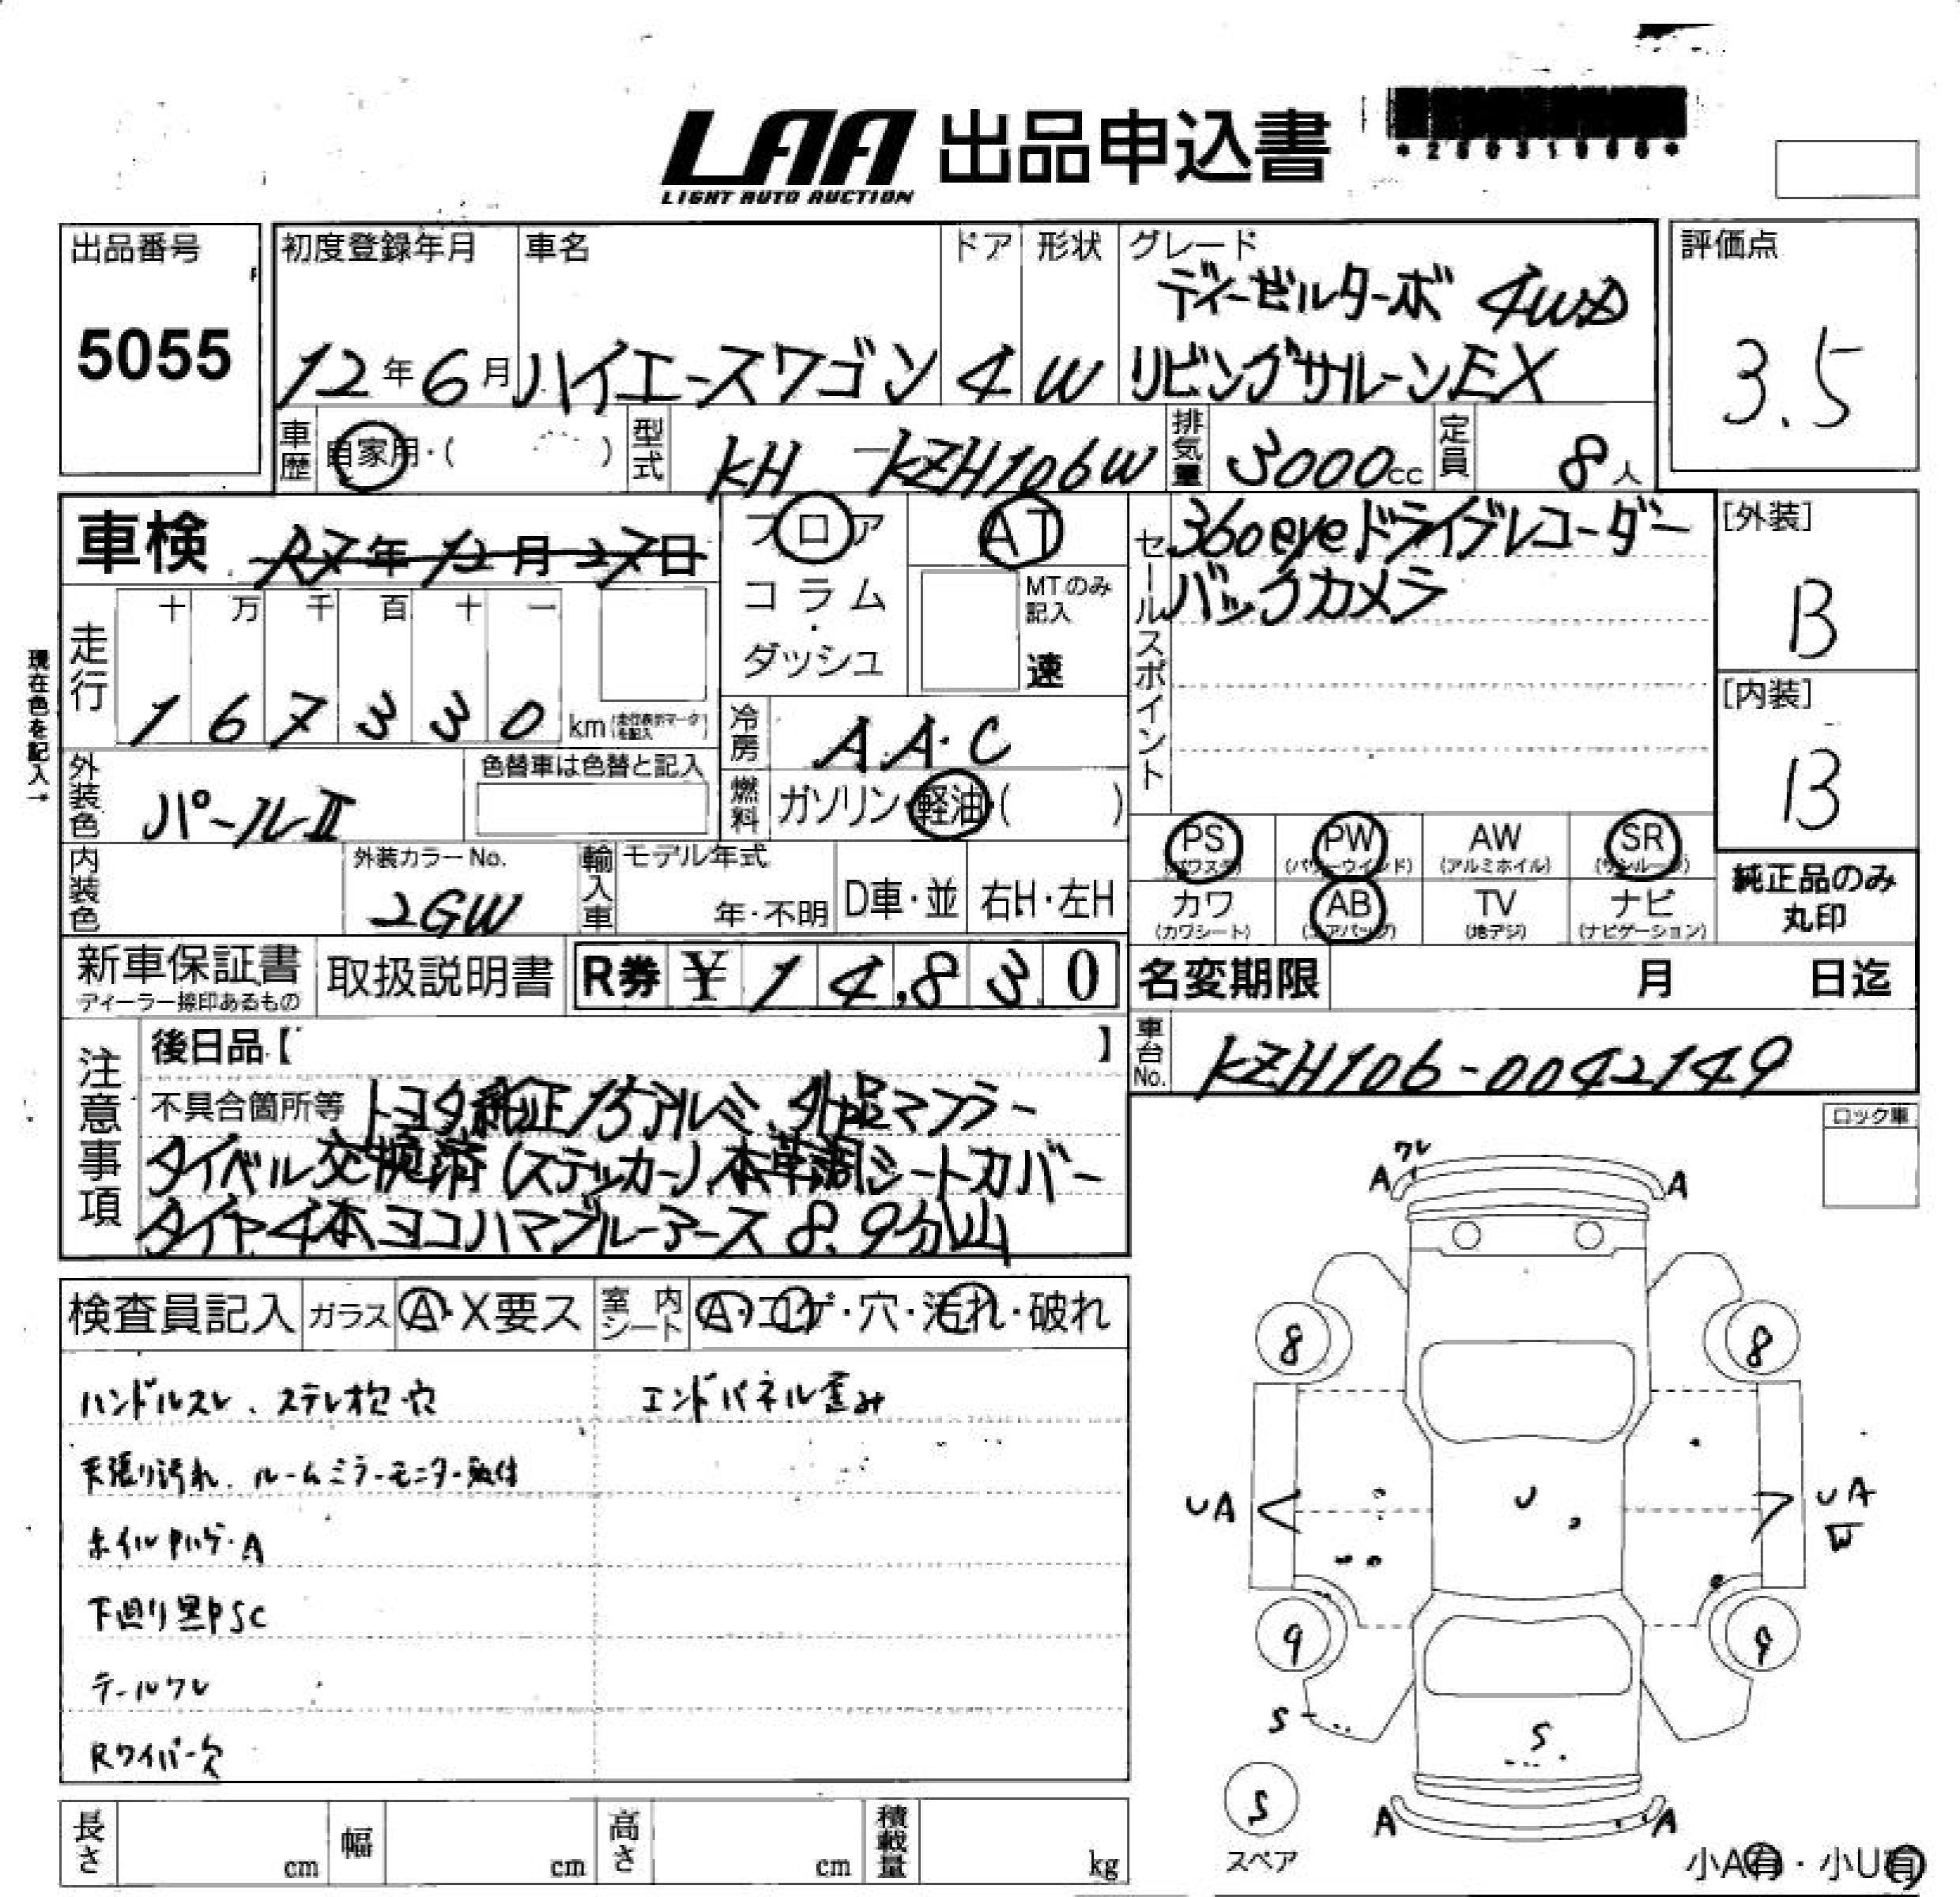 LAA 出品申込書
LIGHT AUTO AUCTION
出品番号
5055
初度登録年月
12年6月
車名
ハイエースワゴン
ドア
4
形状
W
グレード
ディーゼルターボ 4WD
リビングサルーンEX
評価点
3.5
車歴 自家用・( )
型式 KH-KZH106W
排気量 3000cc
定員 8人
車検 R7年12月27日
フロア
コラム
・
ダッシュ
AT
MTのみ
記入
速
セールスポイント
360eyeドライブレコーダー
バックカメラ
[外装]
B
[内装]
B
現在色を記入→
走行
十 万 千 百 十 一
1 6 7 3 3 0 km (走行表示マークを記入)
冷房 A.A.C
外装色 パールII
色替車は色替と記入
燃料 ガソリン・軽油・( )
PS PW AW SR
(パワステ) (パワーウインド) (アルミホイル) (サンルーフ)
カワ AB TV ナビ
(カワシート) (エアバッグ) (地デジ) (ナビゲーション)
純正品のみ
丸印
内装色
外装カラーNo.
2GW
輸入車 モデル年式
年・不明
D車・並
右H・左H
新車保証書
ディーラー捺印あるもの
取扱説明書
R券 ¥14,830
名変期限 月 日迄
車台No. KZH106-0042149
注意事項
後日品【 】
不具合箇所等 トヨタ純正15アルミ、外品マフラー
タイベル交換済(ステッカー)、本革調シートカバー
タイヤ4本ヨコハマブルーアース8.9分山
ロック車
検査員記入 ガラス A・X要ス 室内シート A・コゲ・穴・汚れ・破れ
ハンドルスレ、ステレオ欠・穴
エンドパネル歪み
天張り汚れ、ルームミラーモニター取付
ホイルハゲ・A
下廻り黒PSC
テールワレ
Rワイパー欠
A ワレ
A
8
8
UA
U
UA
W
9
9
S
S
S
スペア
A
A
長さ cm 幅 cm 高さ cm 積載量 kg
小A有・小U有